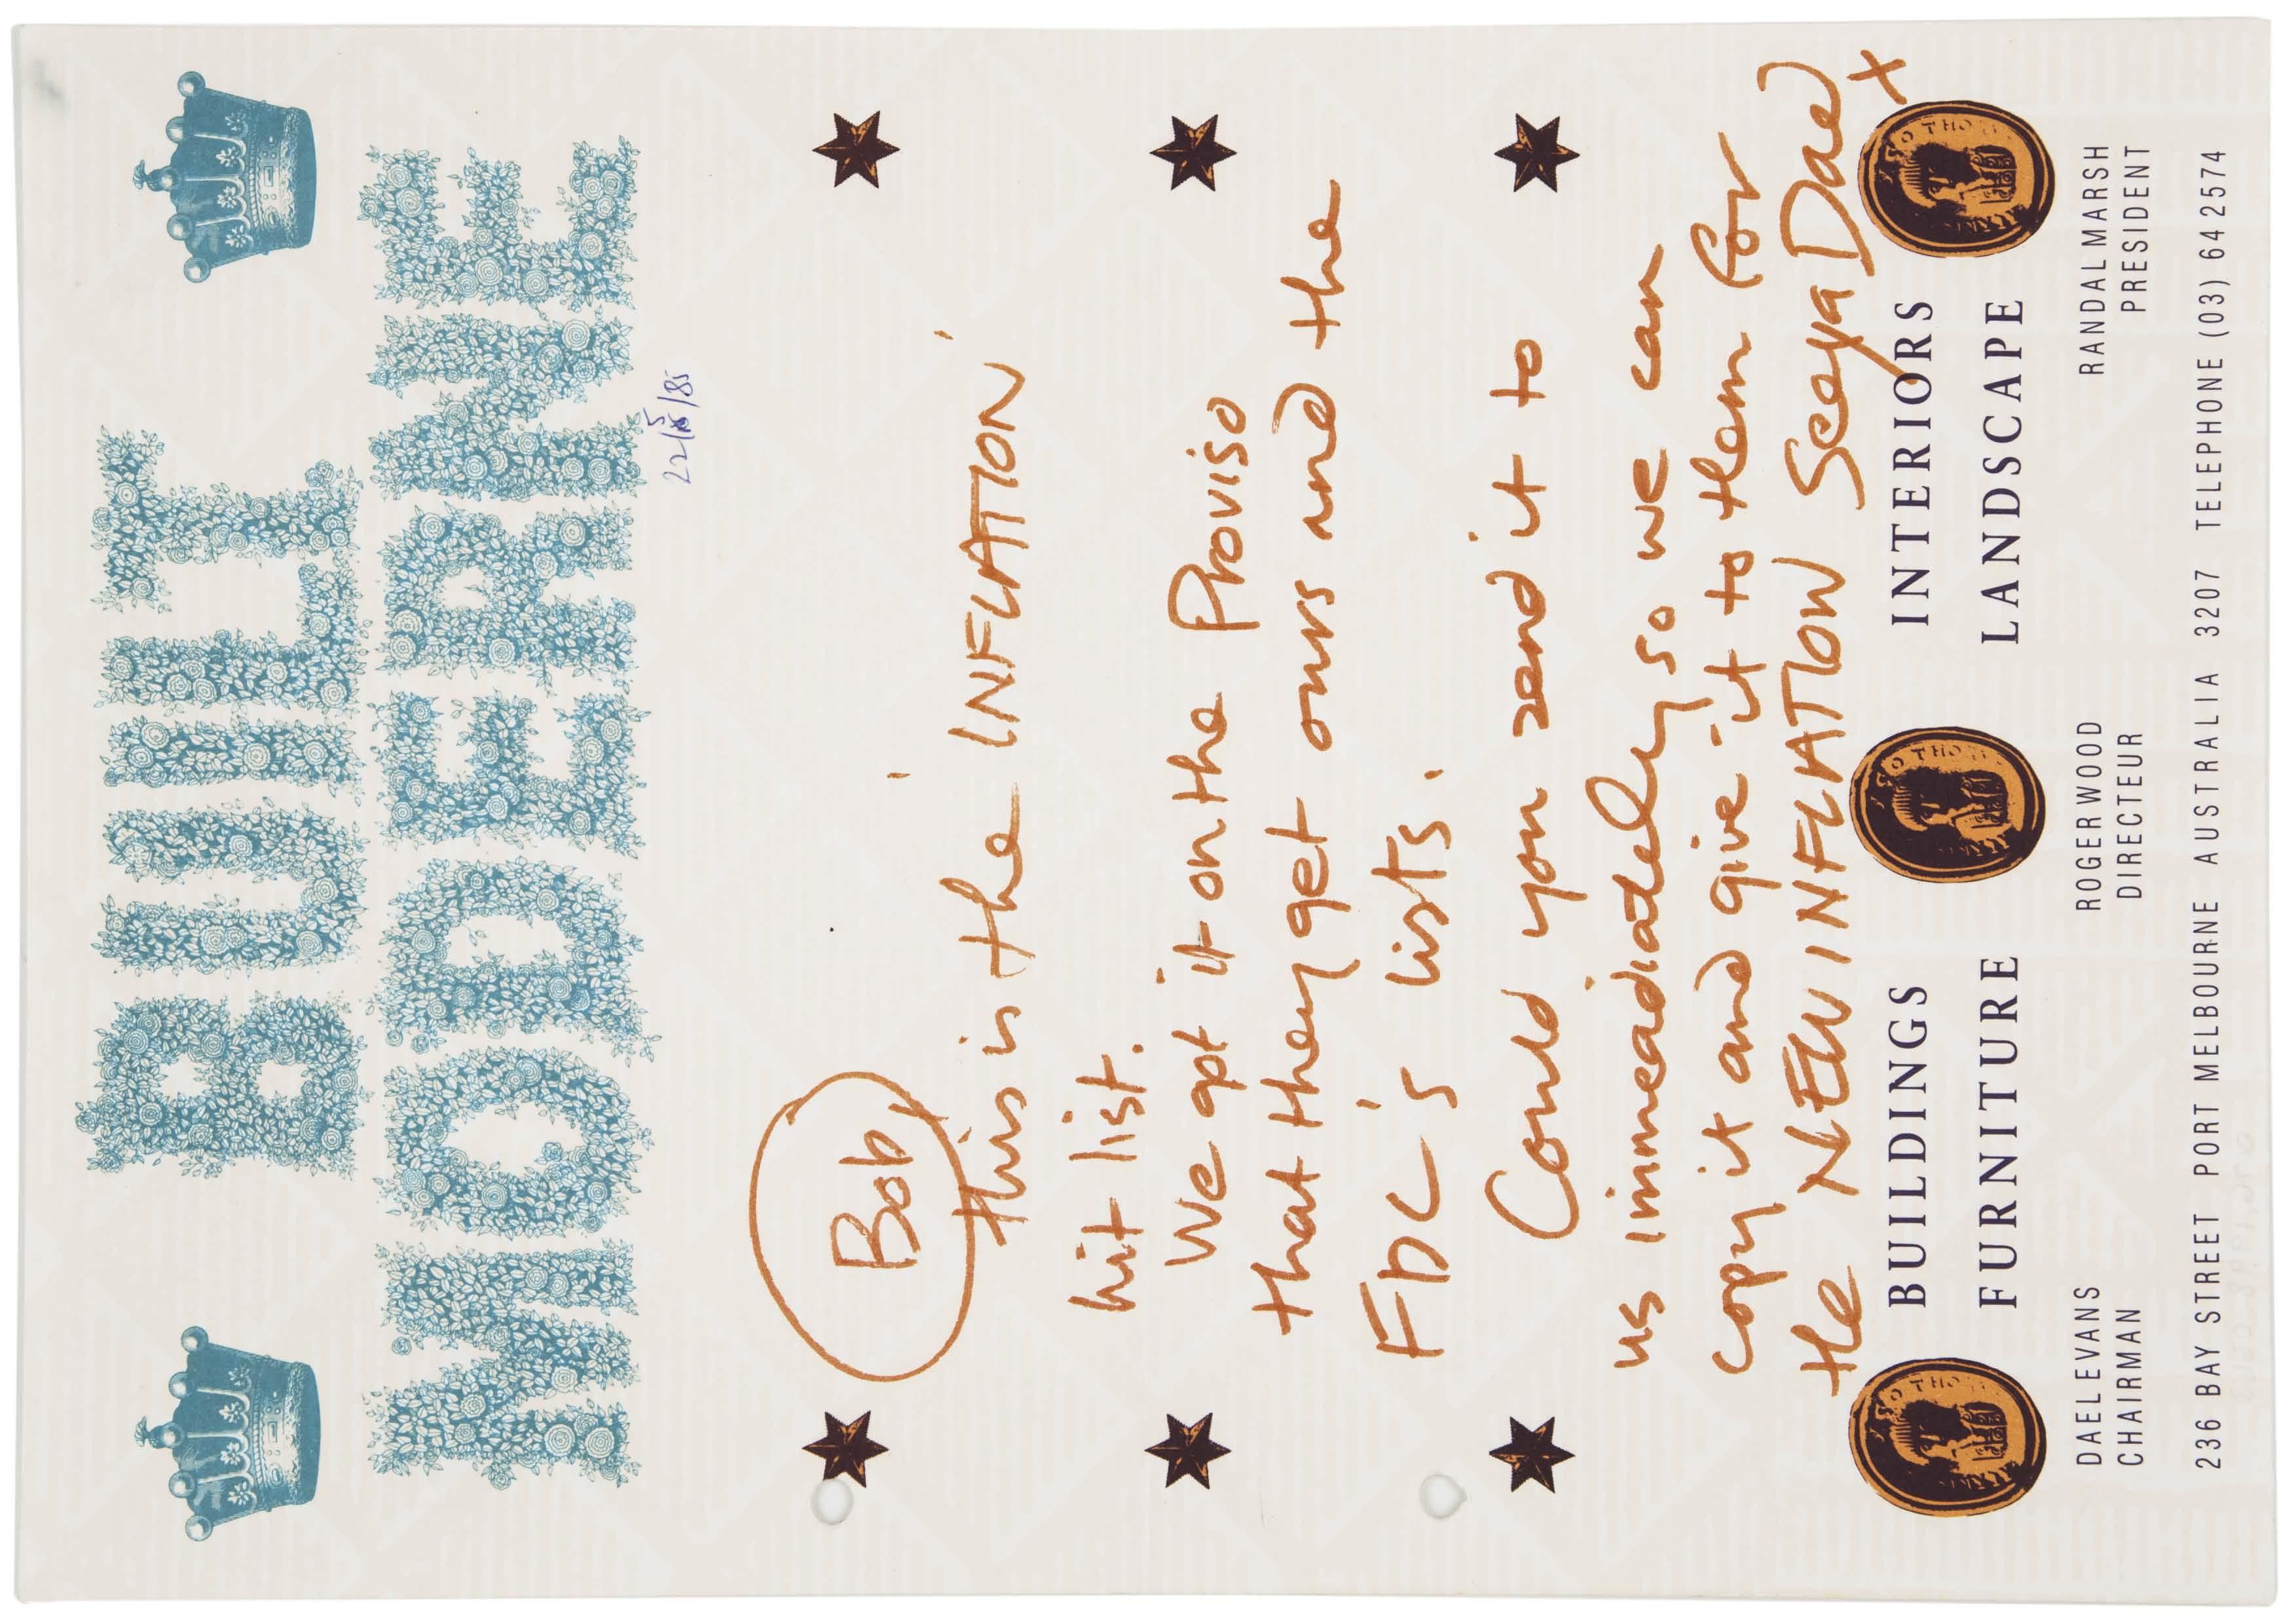 BUILT
MODERNE
22/5/85
Bob
this is the 'INFLATION'
hit list.
We got it on the Proviso
that they get ours and the
FDC's lists.
Could you send it to
us immeadiately so we can
copy it and give it to them for
the NEW INFLATION Seeya Dael
x
BUILDINGS INTERIORS
FURNITURE LANDSCAPE
DAEL EVANS ROGER WOOD RANDAL MARSH
CHAIRMAN DIRECTEUR PRESIDENT
236 BAY STREET PORT MELBOURNE AUSTRALIA 3207 TELEPHONE (03) 64 2574